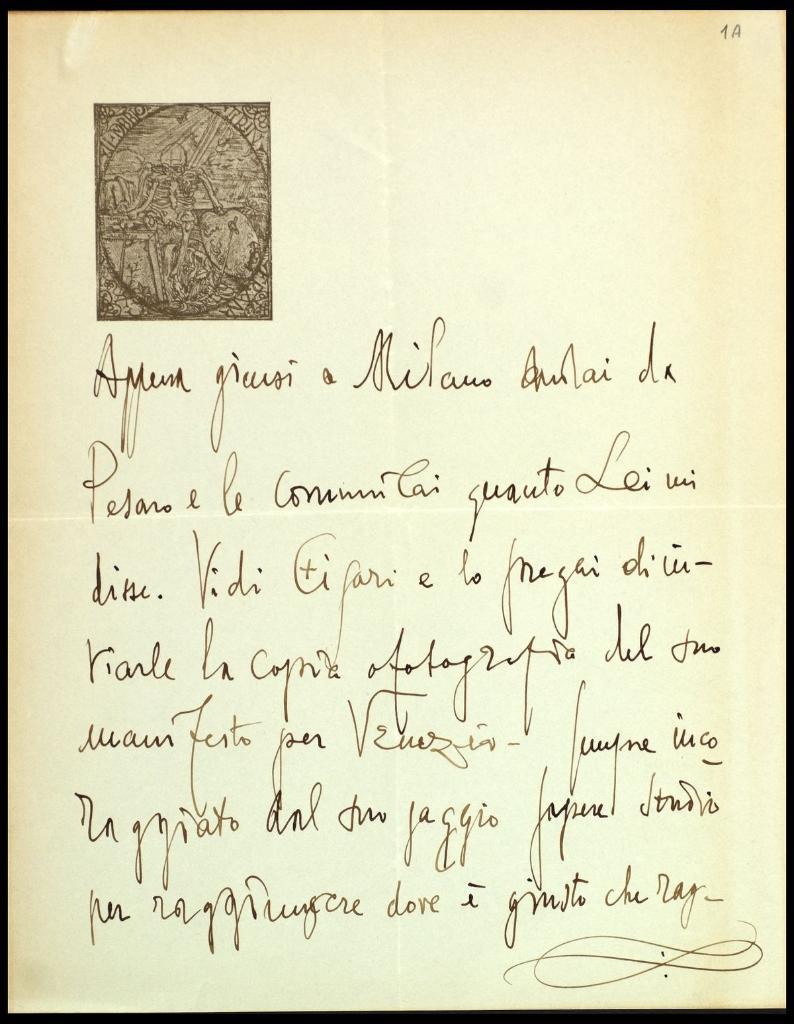 1A
Appena giunsi a Milano andai da
Pesaro e le comunicai quanto Lei mi
disse. Vidi e lo pregai di in-
viarle la copia o fotografia del suo
manifesto per Venezia - Sempre inco
raggiato dal suo saggio sapere studio
per raggiungere dove è giusto che rag-